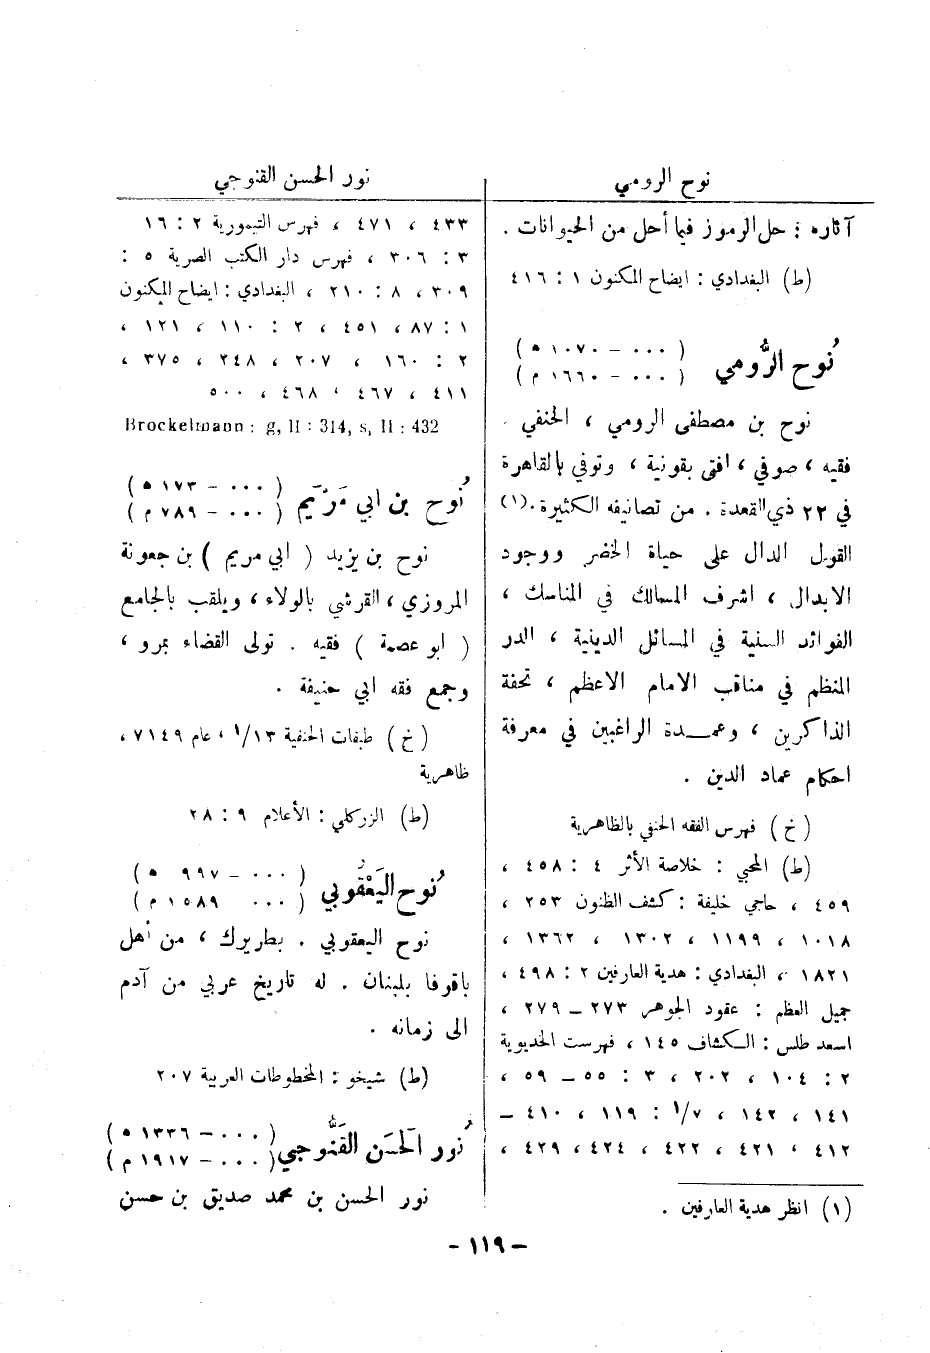 نوح الرومي
آثاره : حل الرموز فيما أحل من الحيوانات .
(ط) البغدادي : ايضاح المكنون ١ : ٤١٦
نُوح الرُّومي
( ... - ١٠٧٠ ه )
( ... - ١٦٦٠ م )
نوح بن مصطفى الرومي ، الحنفي .
فقيه ، صوفي ، افتى بقونية ، وتوفي بالقاهرة
في ٢٢ ذي القعدة . من تصانيفه الكثيرة .(١)
القول الدال على حياة الخضر ووجود
الابدال ، اشرف المسالك في المناسك ،
الفوائد السنية في المسائل الدينية ، الدر
المنظم في مناقب الامام الاعظم ، تحفة
الذاكرين ، وعمدة الراغبين في معرفة
احكام عماد الدين .
(خ) فهرس الفقه الحنفي بالظاهرية
(ط) المحبي : خلاصة الأثر ٤ : ٤٥٨ ،
٤٥٩ ، حاجي خليفة : كشف الظنون ٢٥٣ ،
١٠١٨ ، ١١٩٩ ، ١٣٠٢ ، ١٣٦٢ ،
١٨٢١ ، البغدادي : هدية العارفين ٢ : ٤٩٨ ،
جميل العظم : عقود الجوهر ٢٧٣ - ٢٧٩ ،
اسعد طلس : الكشاف ١٤٥ ، فهرست الخديوية
٢ : ١٠٤ ، ٢٠٢ ، ٣ : ٥٥ - ٥٩ ،
١٤١ ، ١٤٢ ، ٧/١ : ١١٩ ، ٤١٠ -
٤١٢ ، ٤٢١ ، ٤٢٢ ، ٤٢٤ ، ٤٢٩ ،
(١) انظر هدية العارفين .
نور الحسن القنوجي
٤٣٣ ، ٤٧١ ، فهرس التيمورية ٢ : ١٦
٣ : ٣٠٦ ، فهرس دار الكتب المصرية ٥ :
٣٠٩ ، ٨ : ٢١٠ ، البغدادي : ايضاح المكنون
١ : ٨٧ ، ٤٥١ ، ٢ : ١١٠ ، ١٢١ ،
٢ : ١٦٠ ، ٢٠٧ ، ٢٤٨ ، ٣٧٥ ،
٤١١ ، ٤٦٧ ، ٤٦٨ ، ٥٠٠
Brockelmann : g, II : 314, s, II : 432
نُوح بن ابي مَرْيَم
( ... - ١٧٣ ه )
( ... - ٧٨٩ م )
نوح بن يزيد ( ابي مريم ) بن جعونة
المروزي ، القرشي بالولاء ، ويلقب بالجامع
( ابو عصمة ) فقيه . تولى القضاء بمرو ،
وجمع فقه ابي حنيفة .
(خ) طبقات الحنفية ١/١٣ ، عام ٧١٤٩ ،
ظاهرية
(ط) الزركلي : الأعلام ٩ : ٢٨
نُوح اليَعْقُوبي
( ... - ٩٩٧ ه )
( ... ١٥٨٩ م )
نوح اليعقوبي . بطريرك ، من أهل
باقوفا بلبنان . له تاريخ عربي من آدم
الى زمانه .
(ط) شيخو : المخطوطات العربية ٢٠٧
نُور الحَسَن القَنُّوجي
( ... - ١٣٣٦ ه )
( ... - ١٩١٧ م )
نور الحسن بن محمد صديق بن حسن
- ١١٩ -